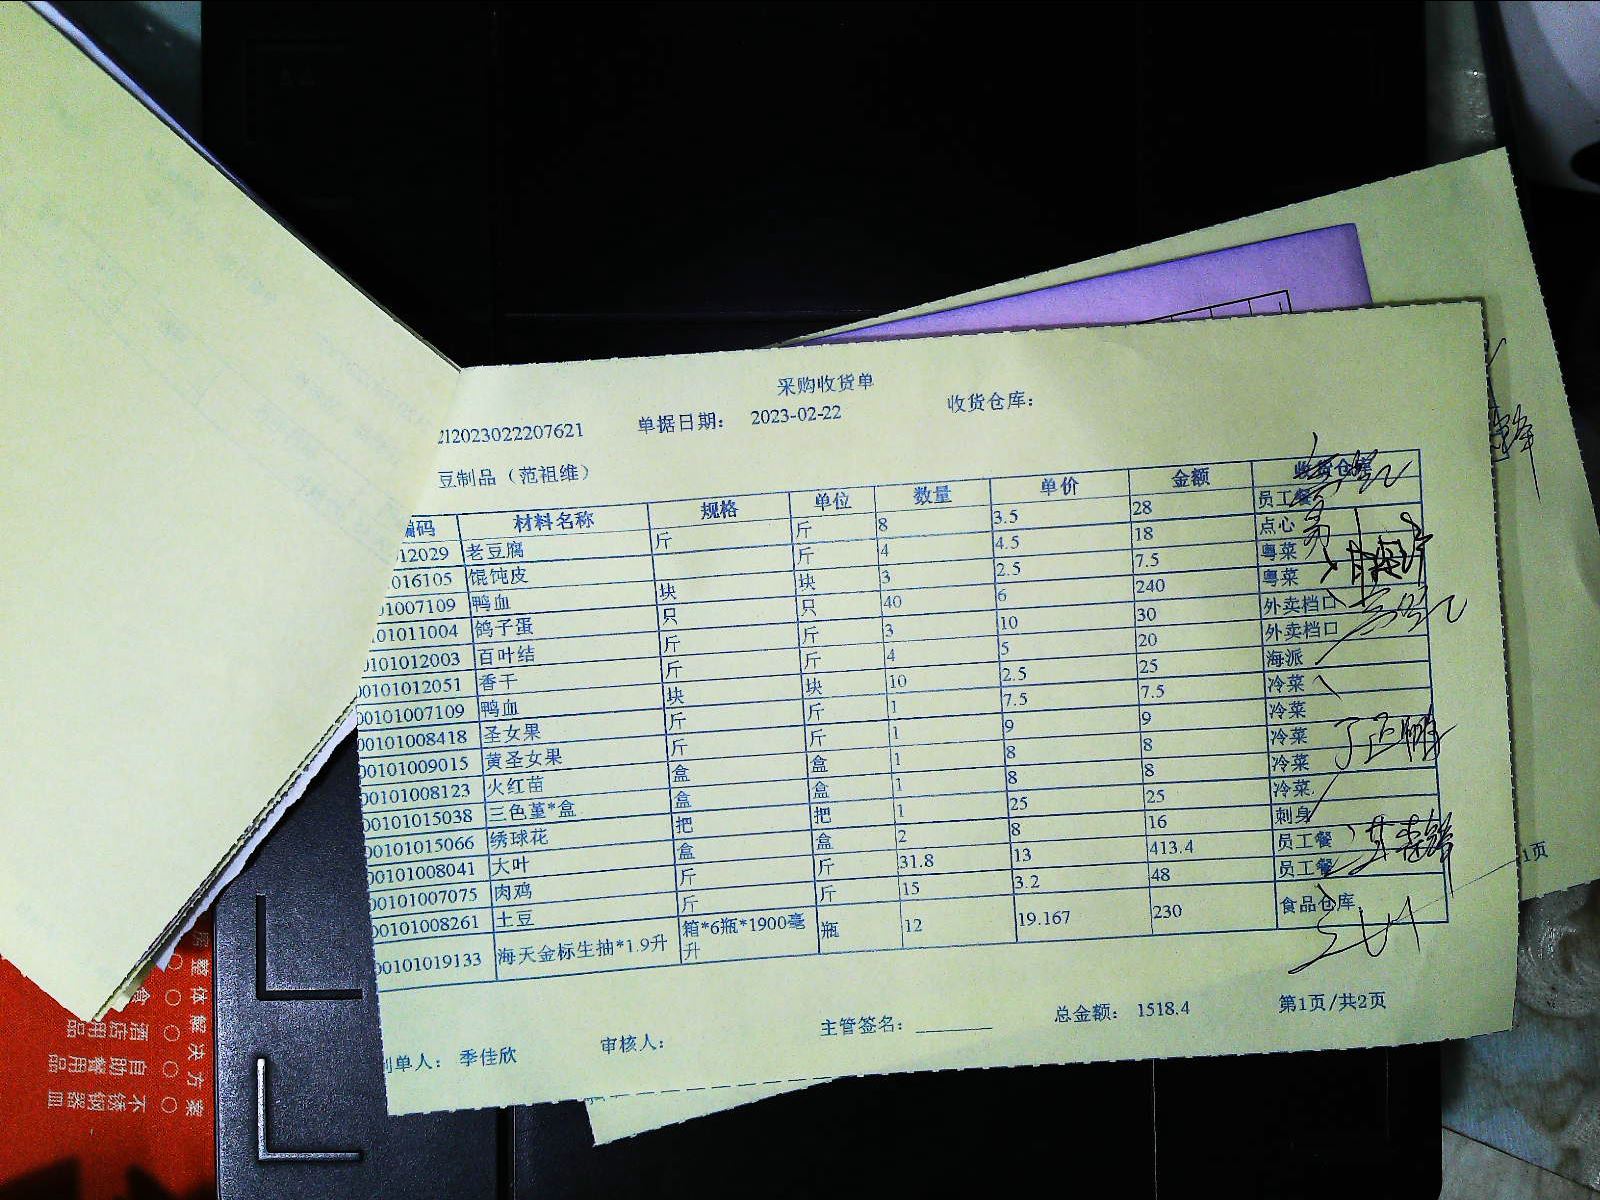 采购收货单
212023022207621 单据日期： 2023-02-22 收货仓库：
豆制品（范祖维）
编码 材料名称 规格 单位 数量 单价 金额 收货仓库
12029 老豆腐 斤 斤 8 3.5 28 员工餐
016105 馄饨皮 斤 4 4.5 18 点心
01007109 鸭血 块 块 3 2.5 7.5 粤菜
101011004 鸽子蛋 只 只 40 6 240 粤菜
0101012003 百叶结 斤 斤 3 10 30 外卖档口
00101012051 香干 斤 斤 4 5 20 外卖档口
00101007109 鸭血 块 块 10 2.5 25 海派
00101008418 圣女果 斤 斤 1 7.5 7.5 冷菜
00101009015 黄圣女果 斤 斤 1 9 9 冷菜
00101008123 火红苗 盒 盒 1 8 8 冷菜
00101015038 三色堇*盒 盒 盒 1 8 8 冷菜
00101015066 绣球花 把 把 1 25 25 冷菜
00101008041 大叶 盒 盒 2 8 16 刺身
00101007075 肉鸡 斤 斤 31.8 13 413.4 员工餐
00101008261 土豆 斤 斤 15 3.2 48 员工餐
00101019133 海天金标生抽*1.9升 箱*6瓶*1900毫升 瓶 12 19.167 230 食品仓库
制单人： 季佳欣 审核人： 主管签名： 总金额： 1518.4 第1页/共2页
1页
房整体解决方案
酒店用品
自助餐用品
不锈钢器皿